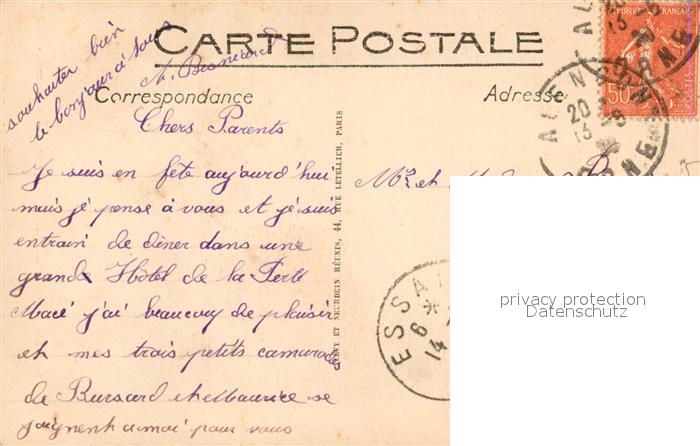 souhaiter bien
le bonjour à tous
M. Besnard
CARTE POSTALE
Correspondance
Adresse
Chers Parents
Je suis en fête aujourd'hui
mais je pense à vous et je suis
entrain de diner dans une
grande Hôtel de la Ferté
Macé j'ai beaucoup de plaisir
et mes trois petits camarades
de Bursard et Maurice se
joignent a moi pour vous
LEVY ET NEURDEIN RÉUNIS, 44, RUE LETELLIER, PARIS
Mr et
RÉPUBLIQUE FRANÇAISE
50
POSTES
ALENÇON
20
13 - 8
ORNE
ESSA
* 6
14
privacy protection
Datenschutz